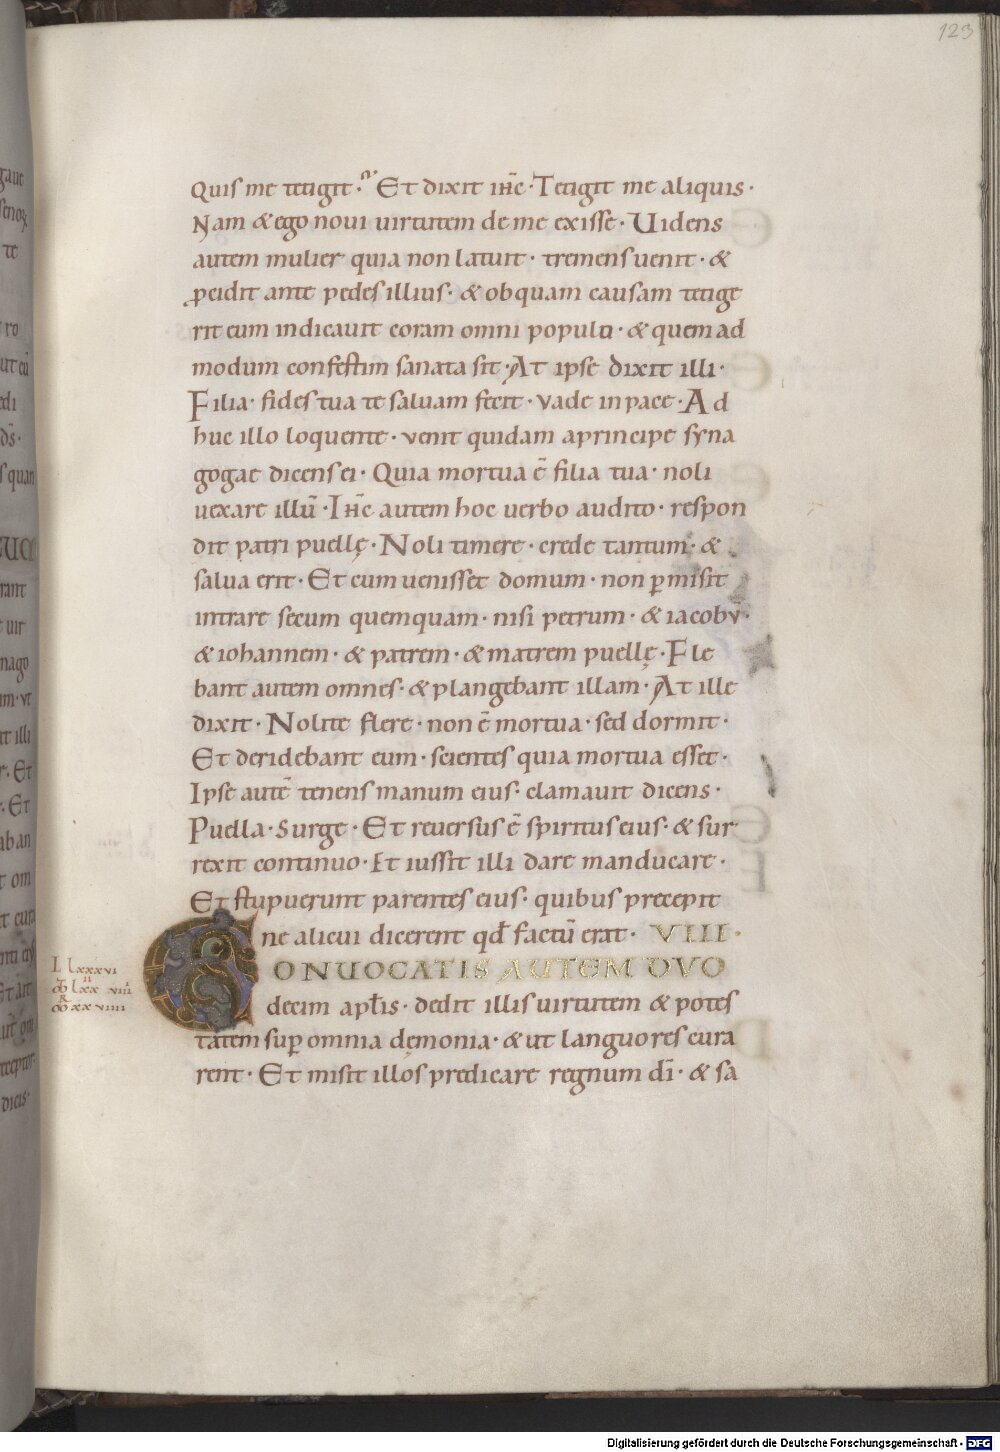 123
Quis me tetigit · Et dixit ihc̄ · Tetigit me aliquis ·
Nam & ego novi uirtutem de me exisse · Uidens
autem mulier quia non latuit · tremens uenit · &
ꝓcidit ante pedes illius · & ob quam causam tetige
rit eum indicauit coram omni populo · & quem ad
modum confestim sanata sit · At ipse dixit illi ·
Filia · fides tua te saluam fecit · vade in pace · Ad
huc illo loquente · venit quidam a principe syna
gogae dicens ei · Quia mortua ē filia tua · noli
uexare illū · Ihc̄ autem hoc uerbo audito · respon
dit patri puellę · Noli timere · crede tantum · &
salua erit · Et cum uenisset domum · non p̱misit
intrare secum quemquam · nisi petrum · & iacobv̄ ·
& iohannem · & patrem · & matrem puellę · Fle
bant autem omnes · & plangebant illam · At ille
dixit · Nolite flere · non ē mortua · sed dormit ·
Et deridebant eum · scientes quia mortua esset ·
Ipse autē tenens manum eius · clamauit dicens ·
Puella · Surge · Et reuersus ē spiritus eius · & sur
rexit continuo · Et iussit illi dare manducare ·
Et stupuerunt parentes eius · quibus precepit
ne alicui dicerent qđ factū erat · VIII ·
CONUOCATIS AUTEM DVO
decim apl̄is · dedit illis uirtutem & potes
tatem sup̱ omnia dęmonia · & ut languores cura
rent · Et misit illos predicare regnum dī · & sa
L lxxxvi
Digitalisierung gefördert durch die Deutsche Forschungsgemeinschaft - DFG